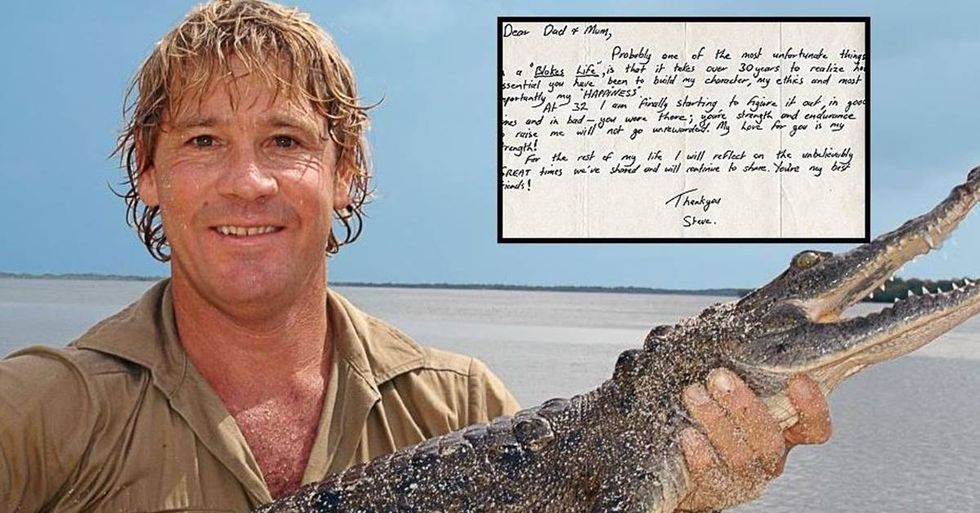 Dear Dad & Mum,
Probably one of the most unfortunate things
a "Blokes Life", is that it takes over 30 years to realize
ssential you have been to build my character, my ethics and most
portantly my "HAPPINESS".
At 32 I am finally starting to figure it out, in good
mes and in bad – you were there; you're strength and endurance
raise me will not go unrewarded. My love for you is my
trength!
For the rest of my life I will reflect on the unbelievably
GREAT times we've shared and will continue to share. You're my best
iends!
Thankyou
Steve.